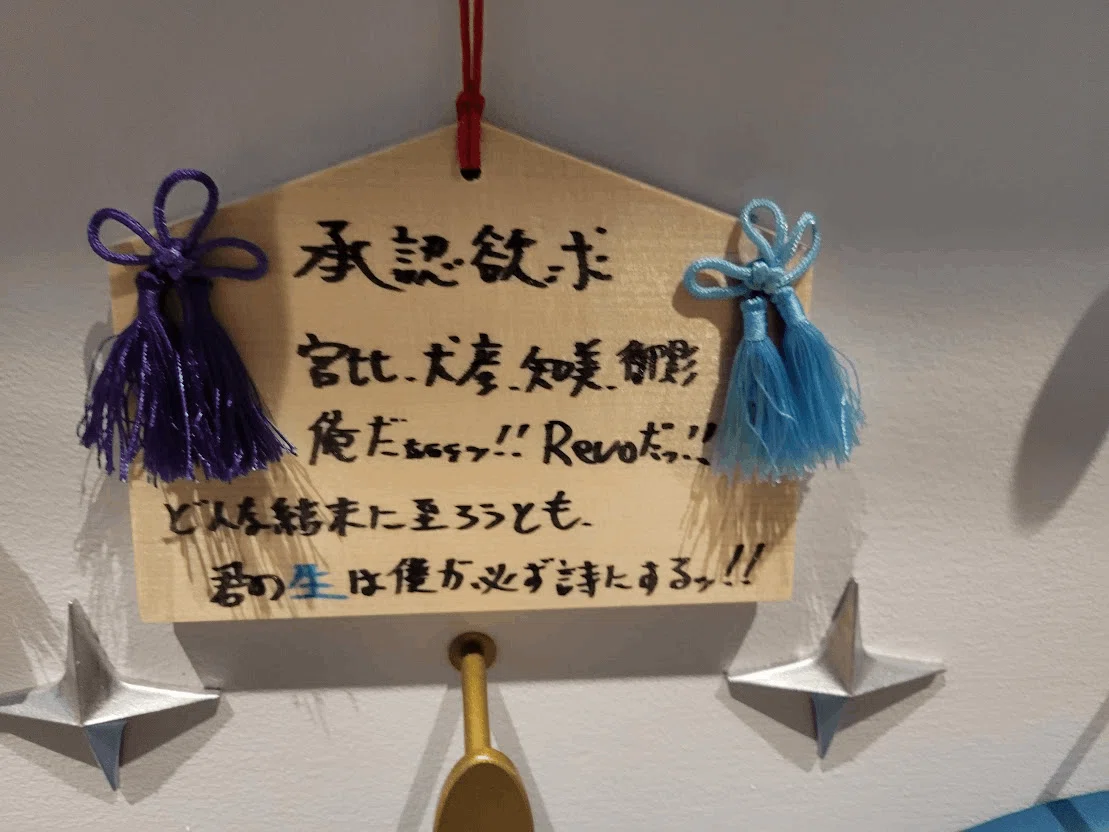 承認欲求
宮比、犬彦、知美、御影
俺だぁぁぁッ!! Revoだッ!!
どんな結末に至ろうとも、
君の生は僕が必ず詩にするッ!!